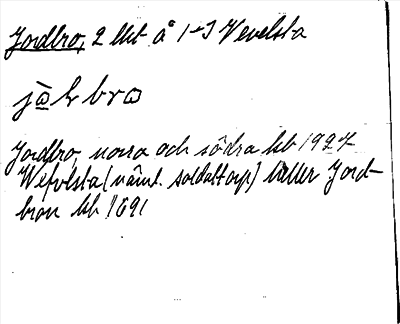 Jordbro, 2 lht å 1-3 Vevelsta
Jordbro, norra och södra hb 1927
Wefvelsta (näml. soldattorp) heller Jord-
bron hb 1691